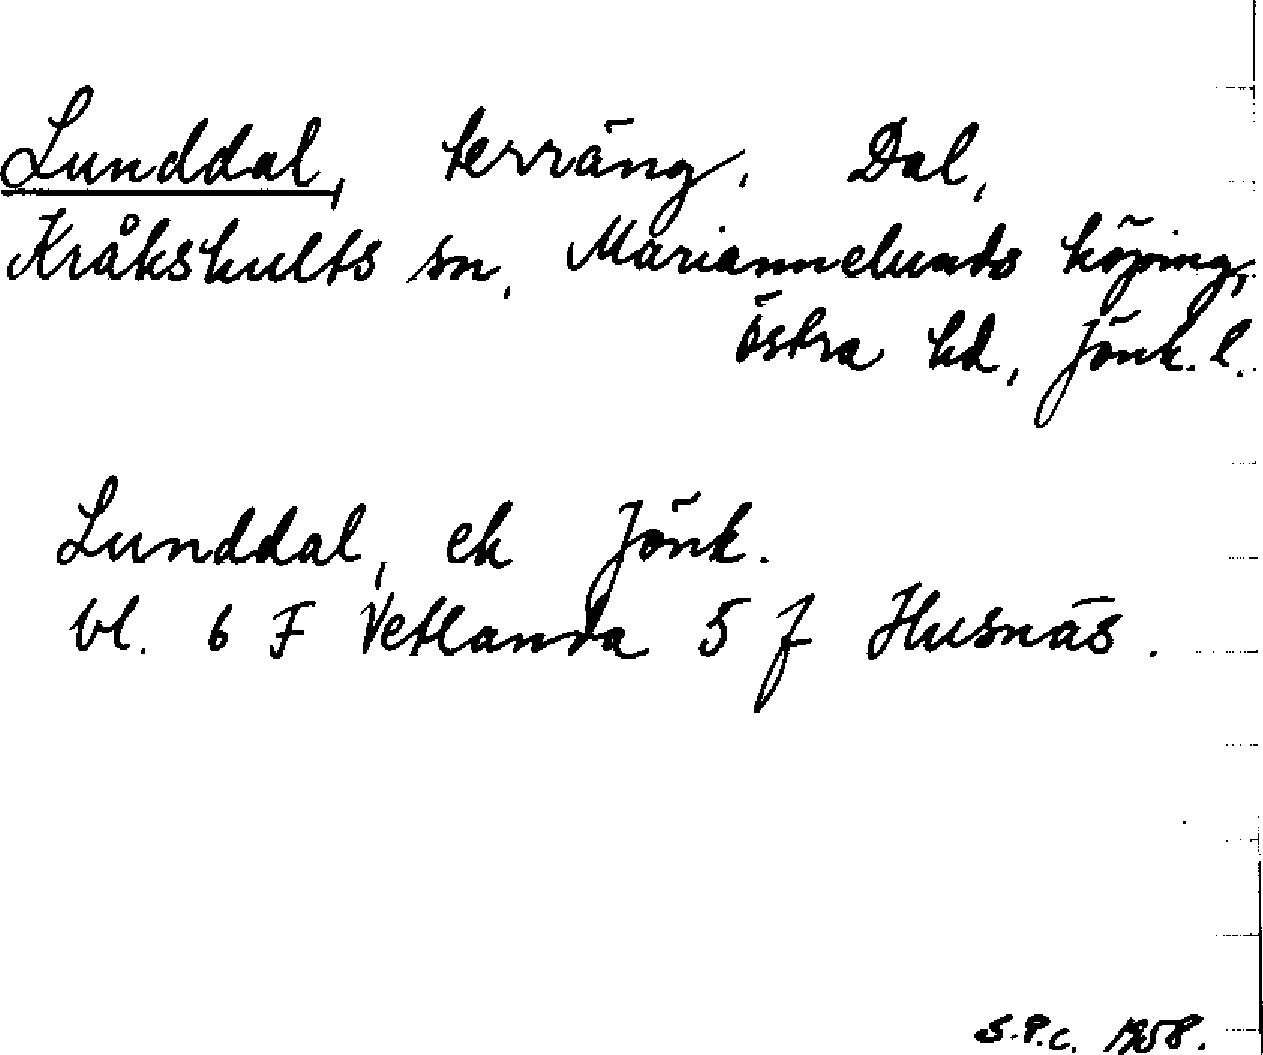 Lunddal, terräng. Dal,
Kråkshults sn, Mariannelunds köping,
Östra hd, Jönk. l.
Lunddal, ek Jönk.
bl. 6 F Vetlanda 5 f Husnäs.
S.P.C. 1958.